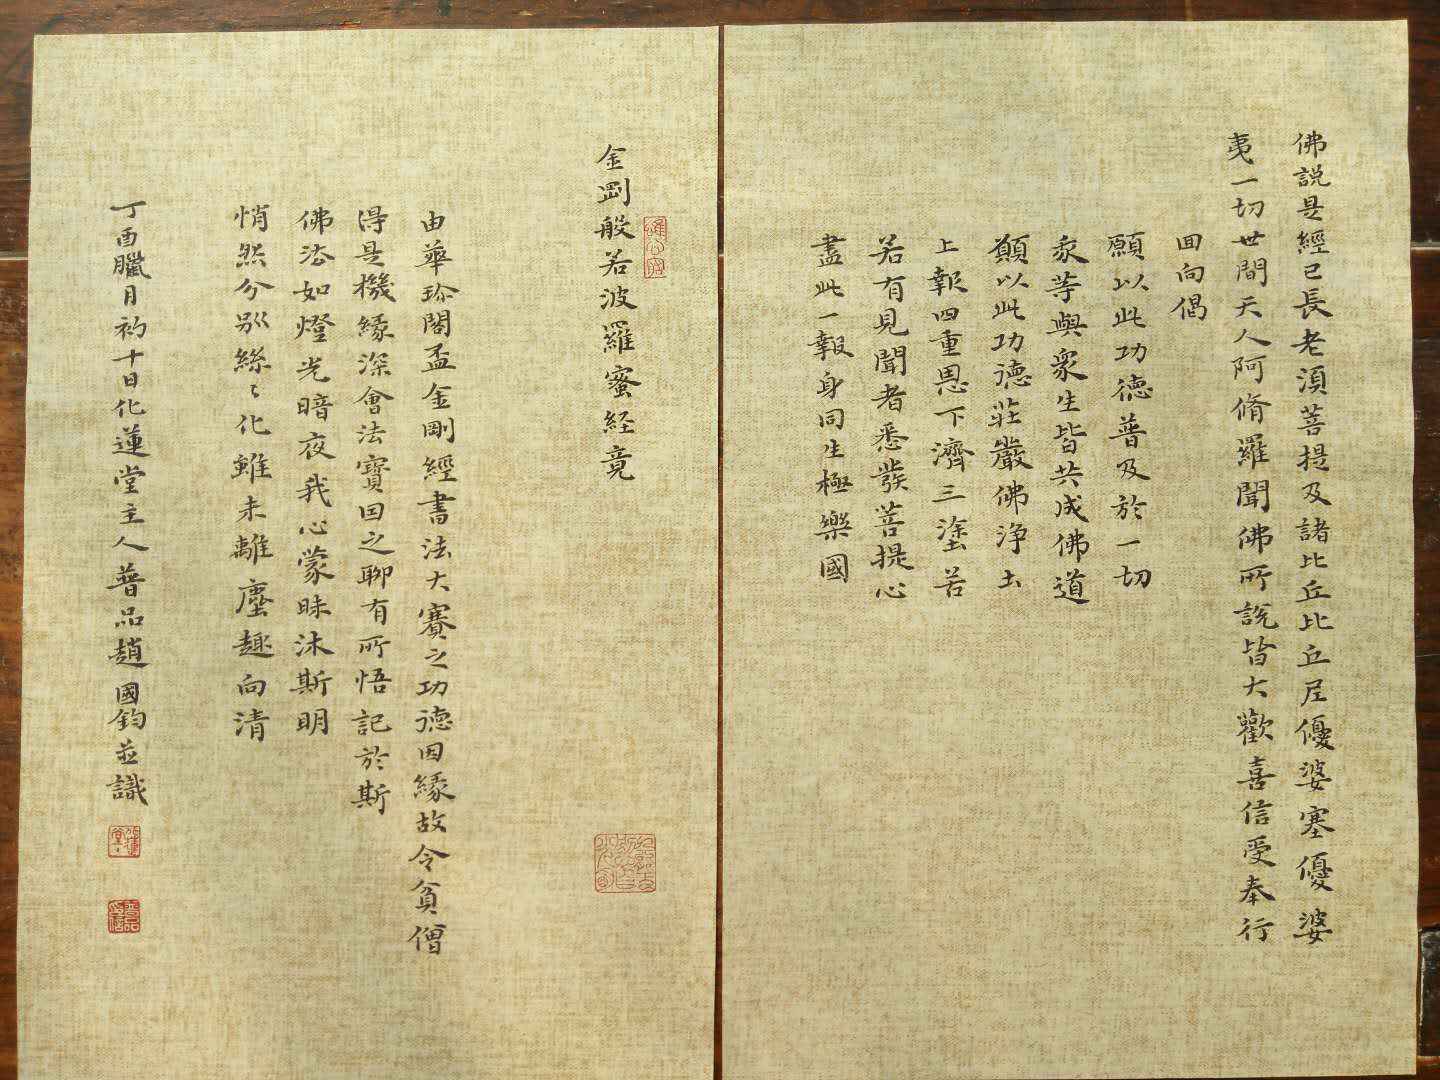 佛説是經已長老須菩提及諸比丘比丘尼優婆塞優婆
夷一切世間天人阿脩羅聞佛所說皆大歡喜信受奉行
回向偈
願以此功德普及於一切
我等與衆生皆共成佛道
願以此功德莊嚴佛浄土
上報四重恩下濟三塗苦
若有見聞者悉發菩提心
盡此一報身同生極樂國
金剛般若波羅蜜経竟
由華珍閣盃金剛經書法大賽之功德因緣故令貧僧
得是機緣深會法寶田之聊有所悟記於斯
佛法如燈光暗夜我心蒙昧沐斯明
悄然分別絲〻化雖未離塵趣向清
丁酉臘月初十日化蓮堂主人普品趙國鈞並識